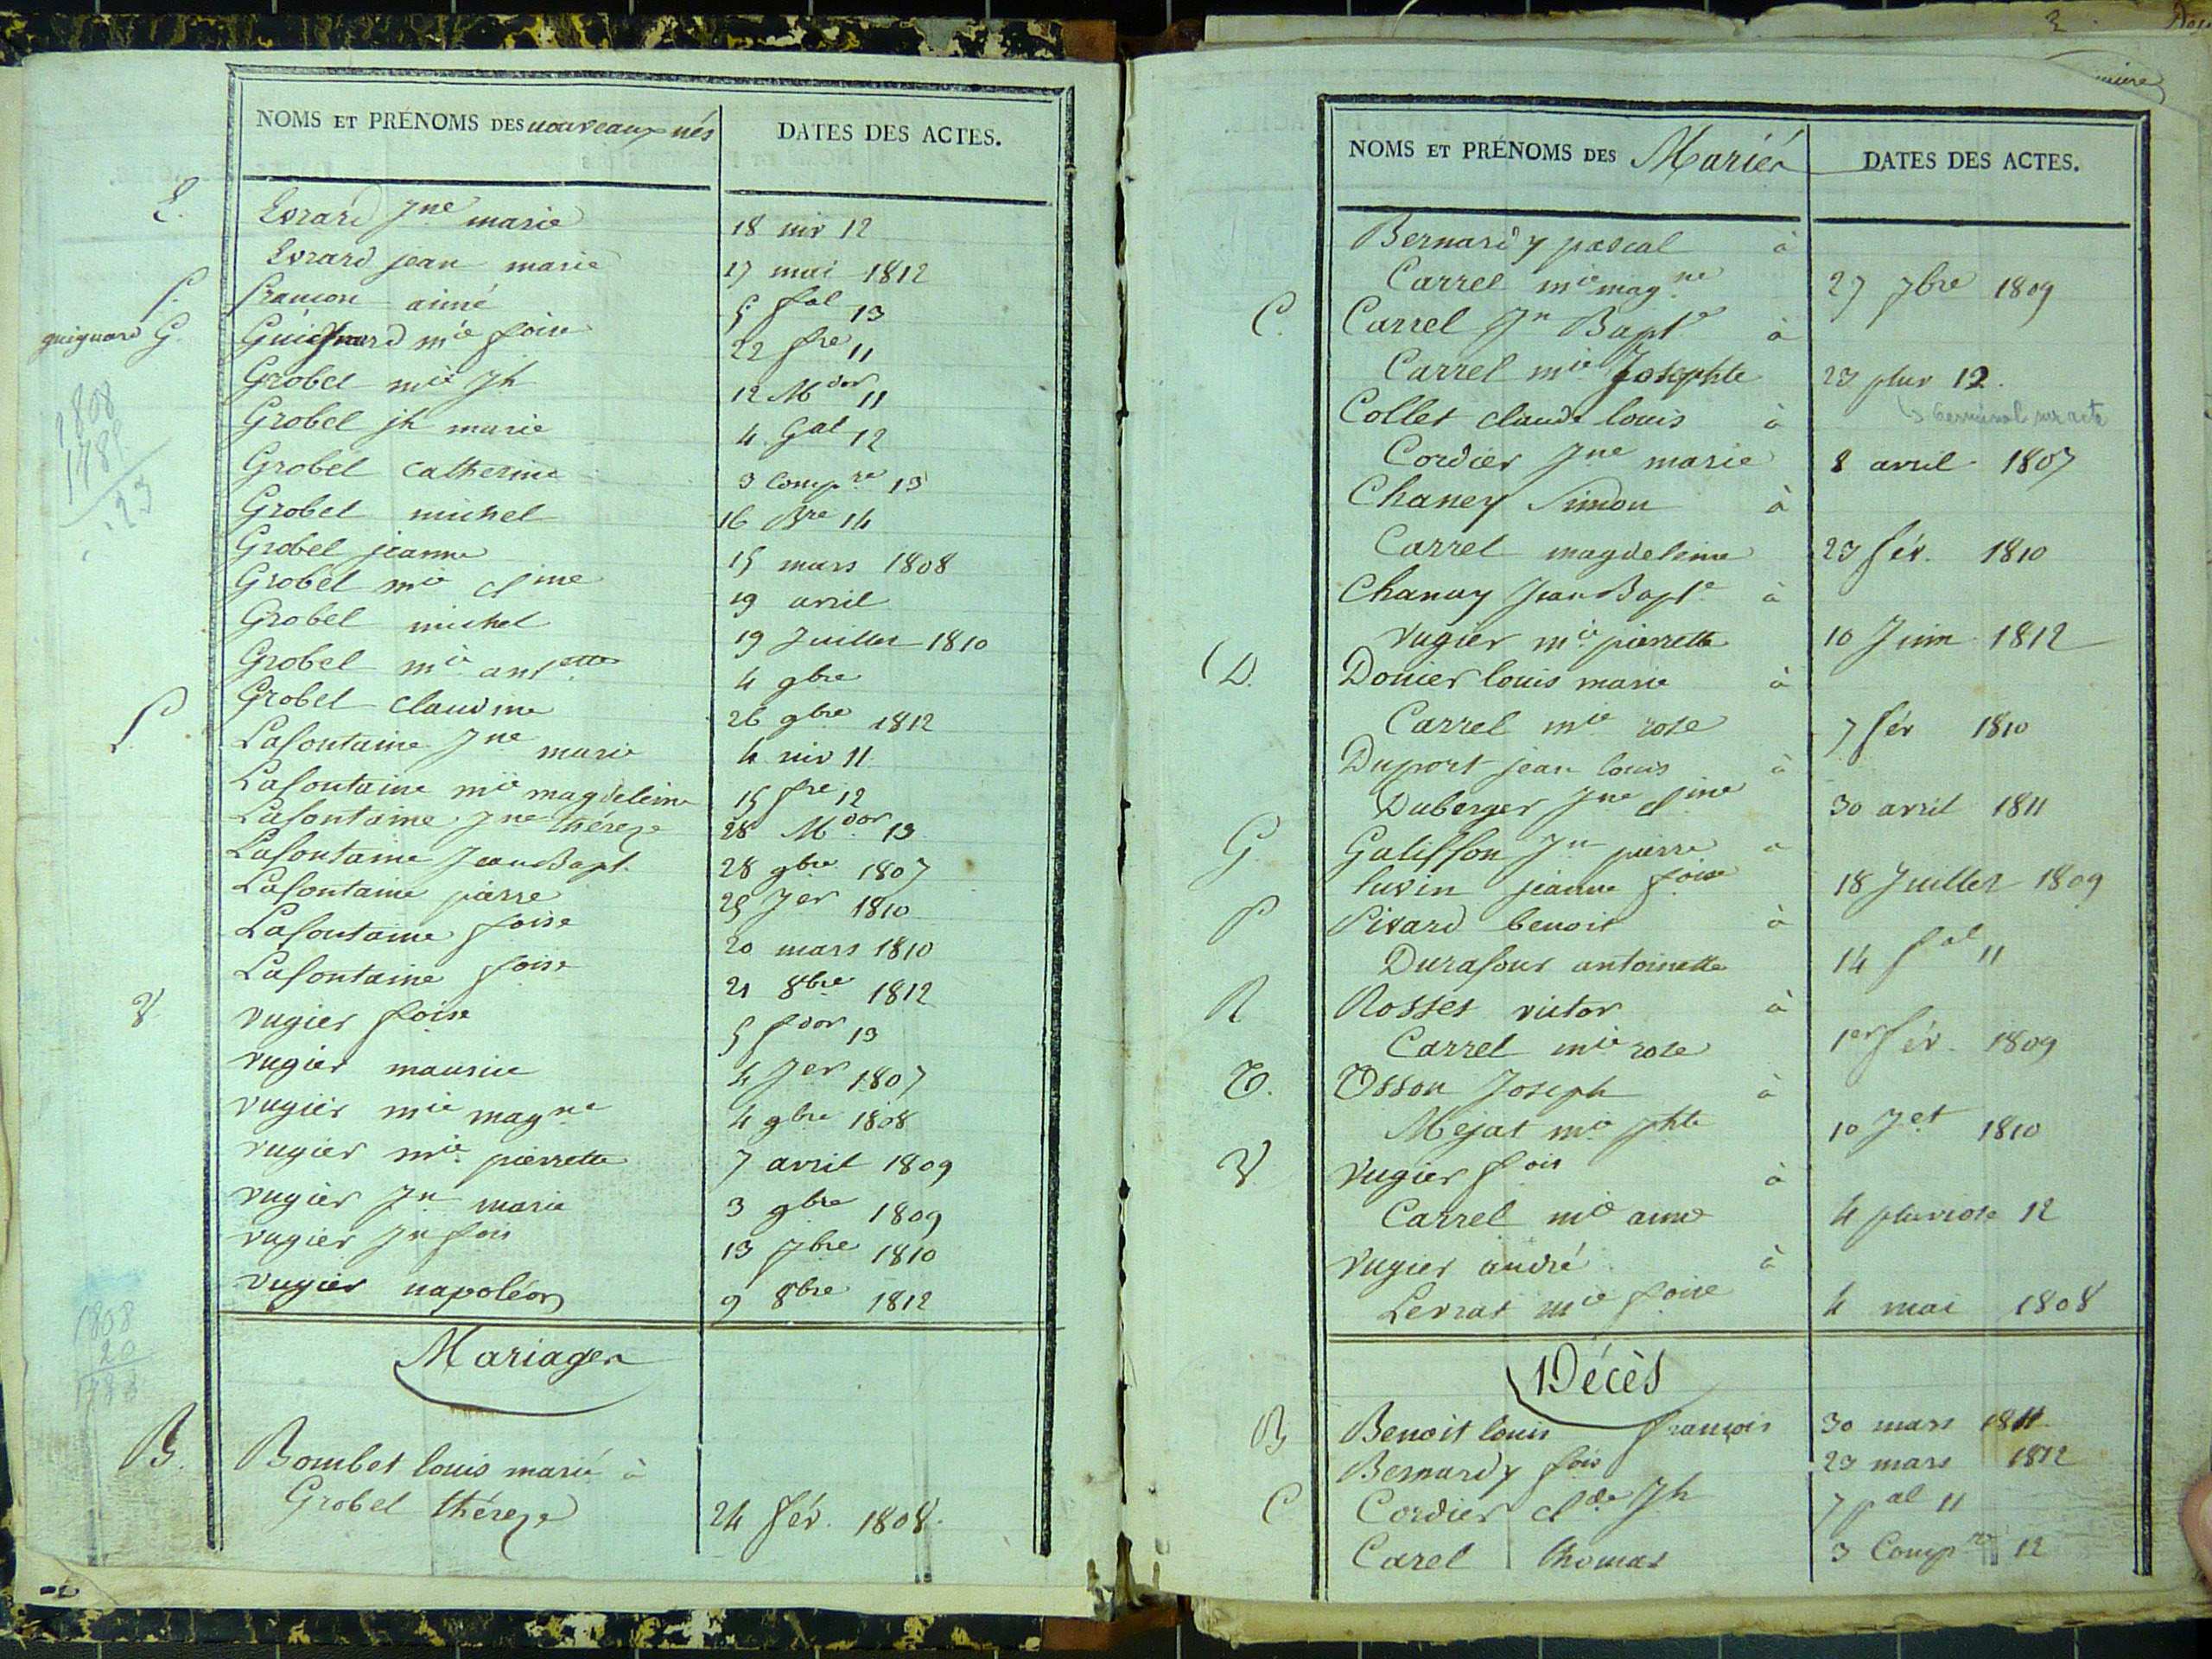 NOMS ET PRÉNOMS DES nouveaux nés
DATES DES ACTES.
E. Evrard Jne marie 18 niv 12
Evrard jean marie 17 mai 1812
f. françon aimé 5 fal 13
guignard G. Guignard mie foise 22 fre 11
Grobel mie Jh 12 Mdor 11
1808
1785
23
Grobel jh marie 4 Gal 12
Grobel catherine 3 Compre 13
Grobel michel 16 Bre 14
Grobel jeanne 15 mars 1808
Grobel mie cline 19 avril
Grobel michel 19 Juillet 1810
Grobel mie antette 4 gbre
Grobel claudine 26 gbre 1812
L. Lafontaine Jne marie 4 niv 11
Lafontaine mie magdeleine 15 fre 12
Lafontaine Jne thérèze 28 Mdor 13
Lafontaine Jean Bapt. 28 gbre 1807
Lafontaine pierre 25 Jer 1810
Lafontaine foise 20 mars 1810
Lafontaine foise 21 8bre 1812
V vugier foise 5 fdor 13
vugier maurice 4 Jer 1807
vugier mie magne 4 gbre 1808
vugier mie pierrette 7 avril 1809
vugier Jn marie 3 gbre 1809
vugier Jn fois 13 7bre 1810
vugier napoléon 9 8bre 1812
1808
20
1788
Mariages
B. Bombet louis marie à
Grobel thérèze 24 fév. 1808.
3
NOMS ET PRÉNOMS DES Mariés
DATES DES ACTES.
Bernardy pascal à
Carrel mie magne 27 7bre 1809
C. Carrel Jn Bapte à
Carrel mie Josephte 23 pluv 12.
Germinal sur acte
Collet claude louis à
Cordier Jne marie 8 avril 1807
Chaney Simon à
Carrel magdeleine 23 fév. 1810
Chanay Jean Bapte à
vugier mie pierrette 10 Juin 1812
D. Donier louis marie à
Carrel mie rose 7 fév 1810
Duport jean louis à
Duberger Jne cline 30 avril 1811
G Galiffon Jn pierre a
luvin jeanne foise 18 Juillet 1809
P Pivard benoit à
Durafour antoinette 14 fal 11
R Rosset victor à
Carrel mie rose 1er fév. 1809
T. Tosson Joseph à
Mejat mie jhte 10 Jet 1810
V vugier fois à
Carrel mie anne 4 pluviose 12
vugier andré à
Levrat mie foise 4 mai 1808
Décès
B Benoit louis françois 30 mars 1811
Bernardy fois 23 mars 1812
C Cordier clde Jh 7 pal 11
Carel thomas 3 Compre 12